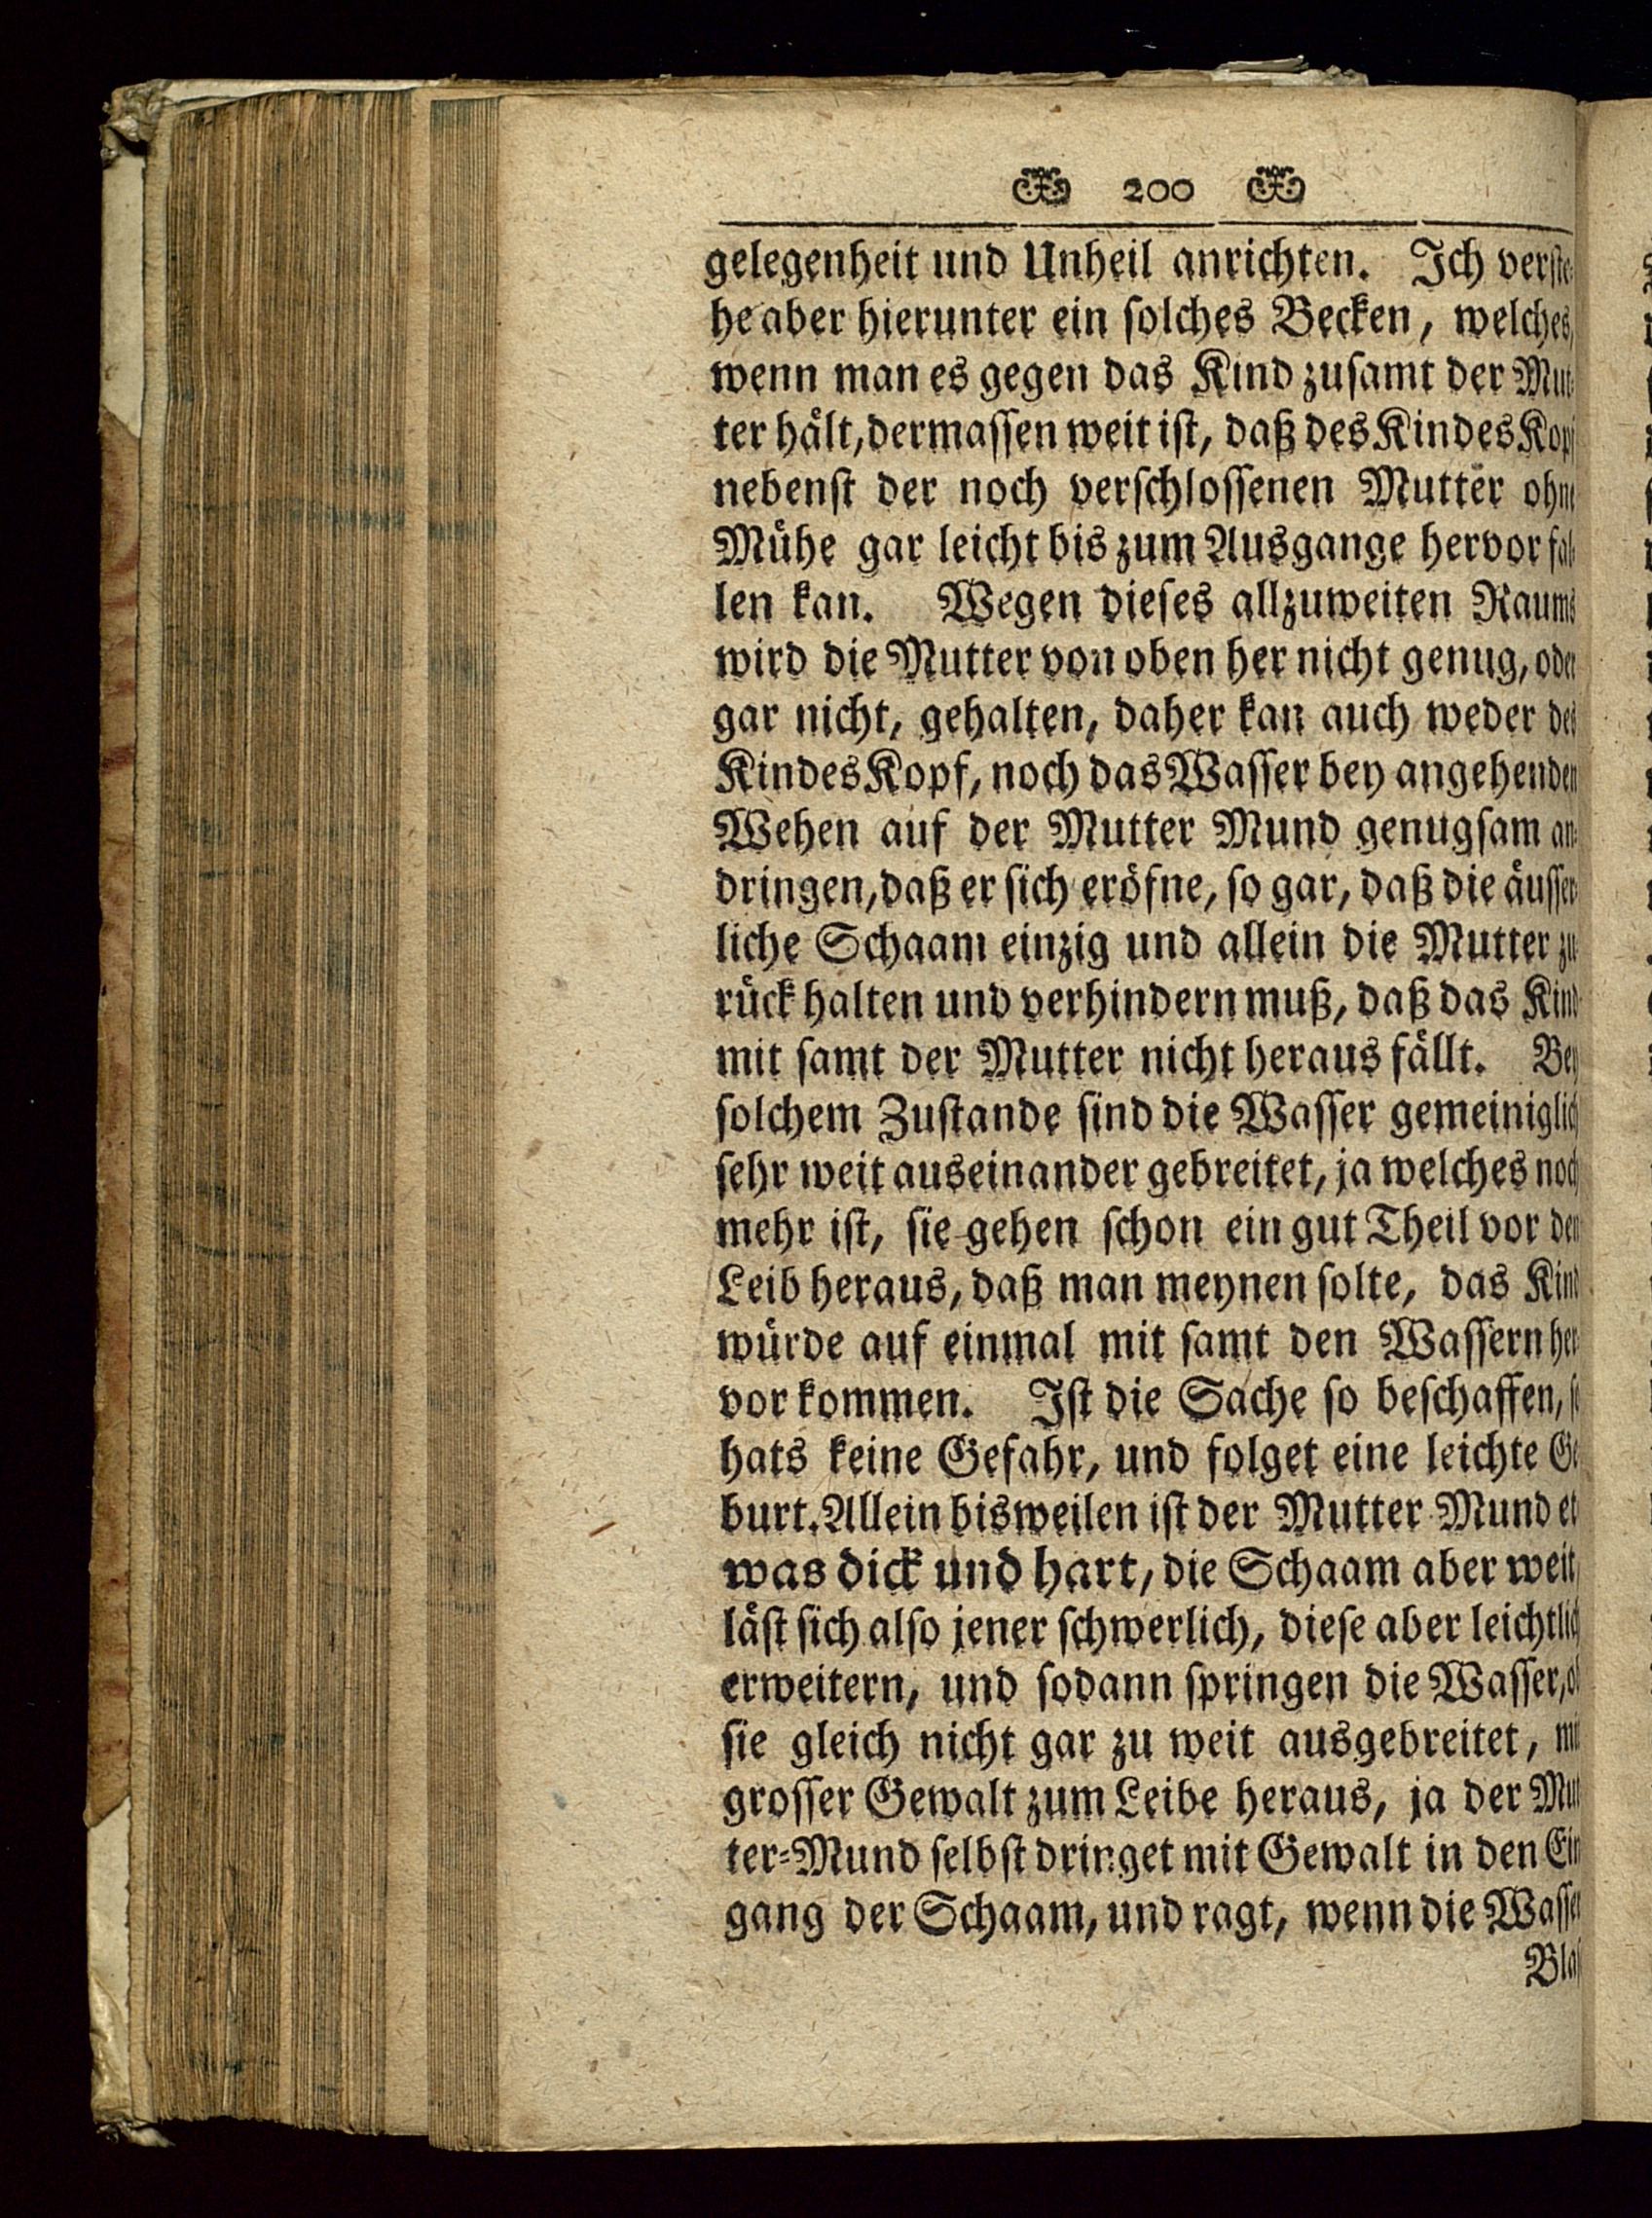 200
gelegenheit und Unheil anrichten. Ich verste-
he aber hierunter ein solches Becken, welches,
wenn man es gegen das Kind zusamt der Mut-
ter hält, dermassen weit ist, daß des Kindes Kopf
nebenst der noch verschlossenen Mutter ohne
Mühe gar leicht bis zum Ausgange hervor fal-
len kan. Wegen dieses allzuweiten Raums
wird die Mutter von oben her nicht genug, oder
gar nicht, gehalten, daher kan auch weder des
Kindes Kopf, noch das Wasser bey angehenden
Wehen auf der Mutter Mund genugsam an-
dringen, daß er sich eröfne, so gar, daß die äusser-
liche Schaam einzig und allein die Mutter zu-
rück halten und verhindern muß, daß das Kind
mit samt der Mutter nicht heraus fällt. Bey
solchem Zustande sind die Wasser gemeiniglich
sehr weit auseinander gebreitet, ja welches noch
mehr ist, sie gehen schon ein gut Theil vor den
Leib heraus, daß man meynen solte, das Kind
würde auf einmal mit samt den Wassern her-
vor kommen. Ist die Sache so beschaffen, so
hats keine Gefahr, und folget eine leichte Ge
burt. Allein bisweilen ist der Mutter Mund et
was dick und hart, die Schaam aber weit,
läst sich also jener schwerlich, diese aber leichtlich
erweitern, und sodann springen die Wasser, ob
sie gleich nicht gar zu weit ausgebreitet, mit
grosser Gewalt zum Leibe heraus, ja der Mut
ter-Mund selbst dringet mit Gewalt in den Ein
gang der Schaam, und ragt, wenn die Wasser
Blas